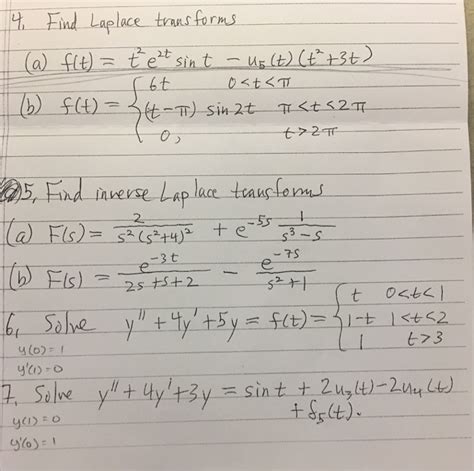 4. Find Laplace transforms
(a) f(t) = t² e^{2t} sin t − u₅(t)(t²+3t)
(b) f(t) = { 6t 0<t<π
(t−π) sin 2t π<t<2π
0, t>2π
5. Find inverse Laplace transforms
(a) F(s) = 2/(s²(s²+4)²) + e^{-5s} 1/(s³−s)
(b) F(s) = e^{-3t}/(2s+s+2) − e^{-7s}/(s²+1)
6. Solve y″+4y′+5y = f(t) = { t 0<t<1
1−t 1<t<2
1 t>3
y(0)=1
y′(1)=0
7. Solve y″+4y′+3y = sin t + 2u₃(t)−2u₄(t)
+ δ₅(t).
y(1)=0
y′(0)=1